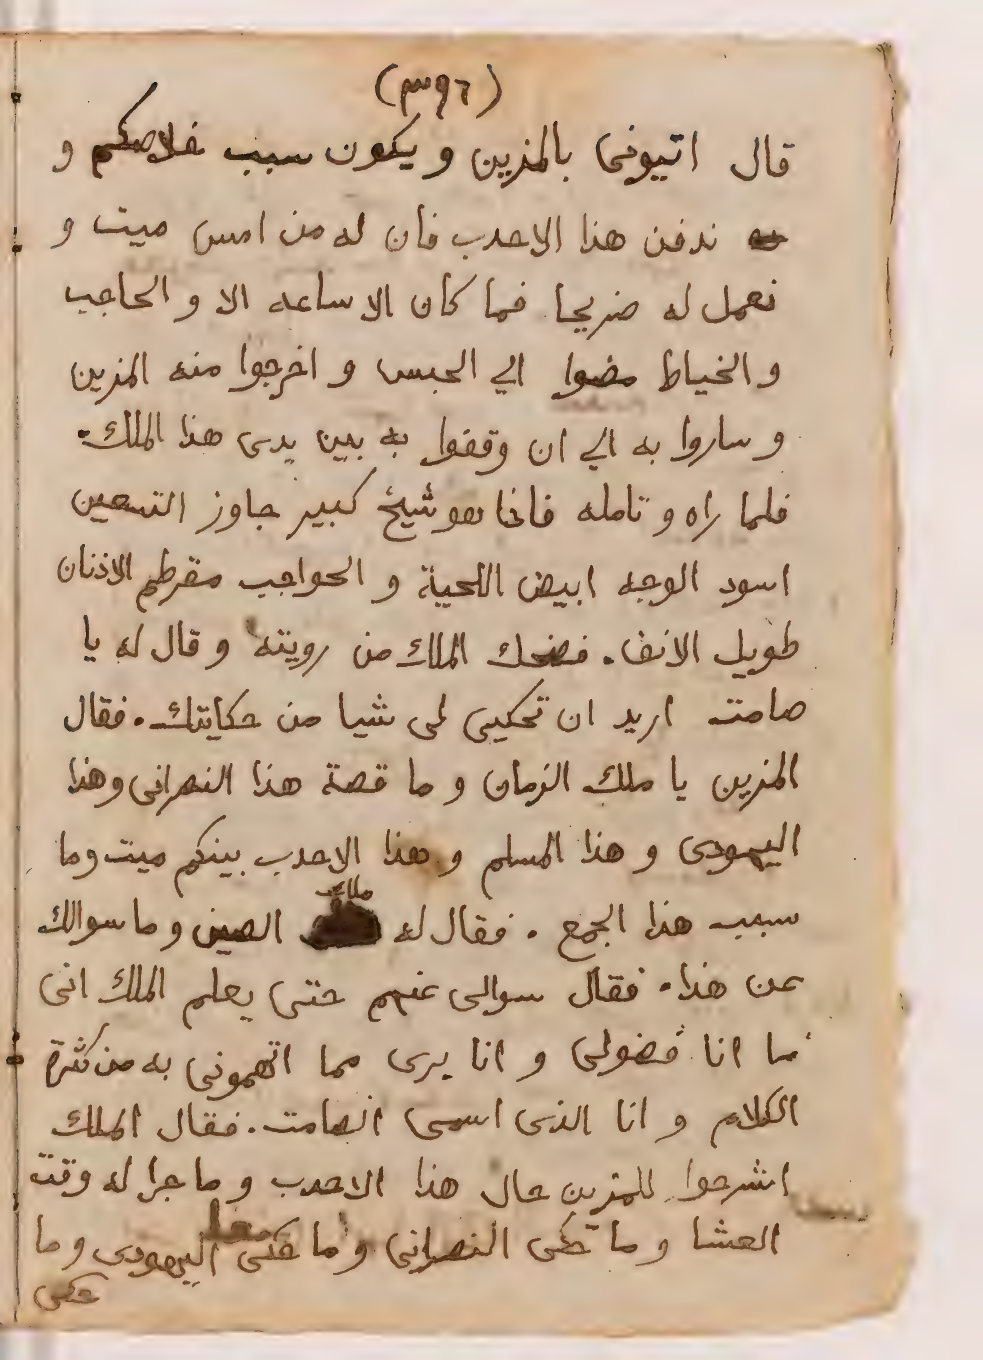 (٣٩٦)
قال اتيونى بالمزين و يكون سبب خلاصكم و
ندفن هذا الاحدب فان له من امس ميت و
نعمل له ضريحا فما كان الا ساعه الا و الحاجب
و الخياط مضوا الي الحبس و اخرجوا منه المزين
و ساروا به الي ان وقفوا به بين يدى هذا الملك.
فلما راه و تامله فاذا هو شيخ كبير جاوز التسعين
اسود الوجه ابيض اللحية و الحواجب مقرطم الاذنان
طويل الانف. فضحك الملك من رويته و قال له يا
صامت اريد ان تحكيى لى شيا من حكايتك. فقال
المزين يا ملك الزمان و ما قصة هذا النصرانى وهذا
اليهودى و هذا المسلم و هذا الاحدب بينكم ميت وما
سبب هذا الجمع . فقال له ملك الصين و ما سوالك
عن هذا. فقال سوالى عنهم حتى يعلم الملك انى
ما انا فضولى و انا برى مما اتهمونى به من كثرة
الكلام و انا الذى اسمى الصامت. فقال الملك
اشرحوا للمزين حال هذا الاحدب و ما جرا له وقت
العشا و ما حكى النصرانى و ما حكى اليهودى و ما
حكى